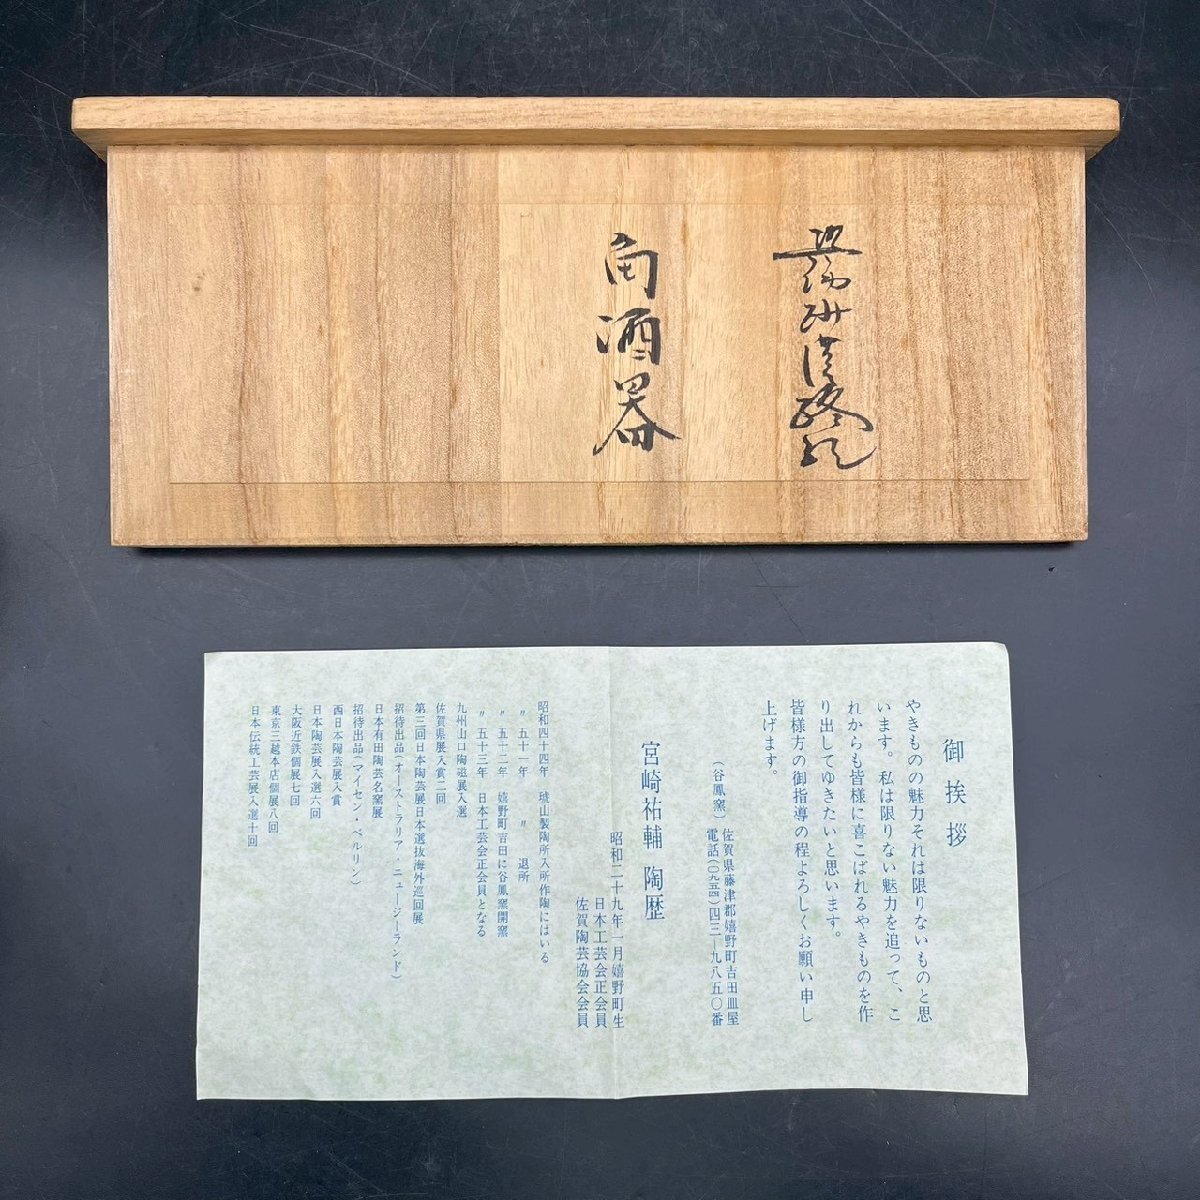 角酒器
御挨拶
やきものの魅力それは限りないものと思
います。私は限りない魅力を追って、こ
れからも皆様に喜こばれるやきものを作
り出してゆきたいと思います。
皆様方の御指導の程よろしくお願い申し
上げます。
(谷鳳窯) 佐賀県藤津郡嬉野町吉田皿屋
電話(〇九五四)四三―九八五〇番
宮崎祐輔 陶歴
昭和二十九年一月嬉野町生
日本工芸会正会員
佐賀陶芸協会会員
昭和四十四年 琥山製陶所入所作陶にはいる
〃 五十一年 〃 退所
〃 五十二年 嬉野町吉田に谷鳳窯開窯
〃 五十三年 日本工芸会正会員となる
九州山口陶磁展入選
佐賀県展入賞二回
第三回日本陶芸展日本選抜海外巡回展
招待出品(オーストラリア・ニュージーランド)
日本有田陶芸名窯展
招待出品(マイセン・ベルリン)
西日本陶芸展入賞
日本陶芸展入選六回
大阪近鉄個展七回
東京三越本店個展八回
日本伝統工芸展入選十回